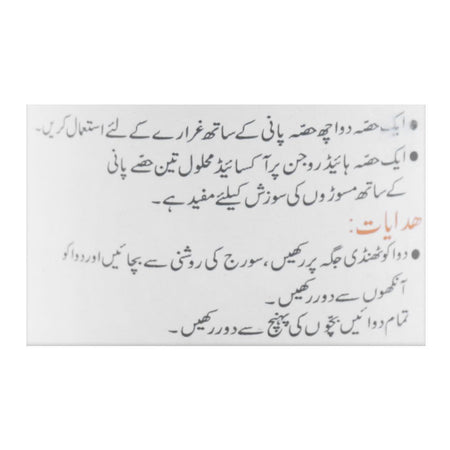 • ایک حصّہ دوا چھ حصّہ پانی کے ساتھ غرارے کے لئے استعمال کریں۔
• ایک حصّہ ہائیڈروجن پرآکسائیڈ محلول تین حصّے پانی
کے ساتھ مسوڑوں کی سوزش کیلئے مفید ہے۔
ھدایات:
• دوا کو ٹھنڈی جگہ پر رکھیں، سورج کی روشنی سے بچائیں اور دوا کو
آنکھوں سے دور رکھیں۔
تمام دوائیں بچّوں کی پہنچ سے دور رکھیں۔